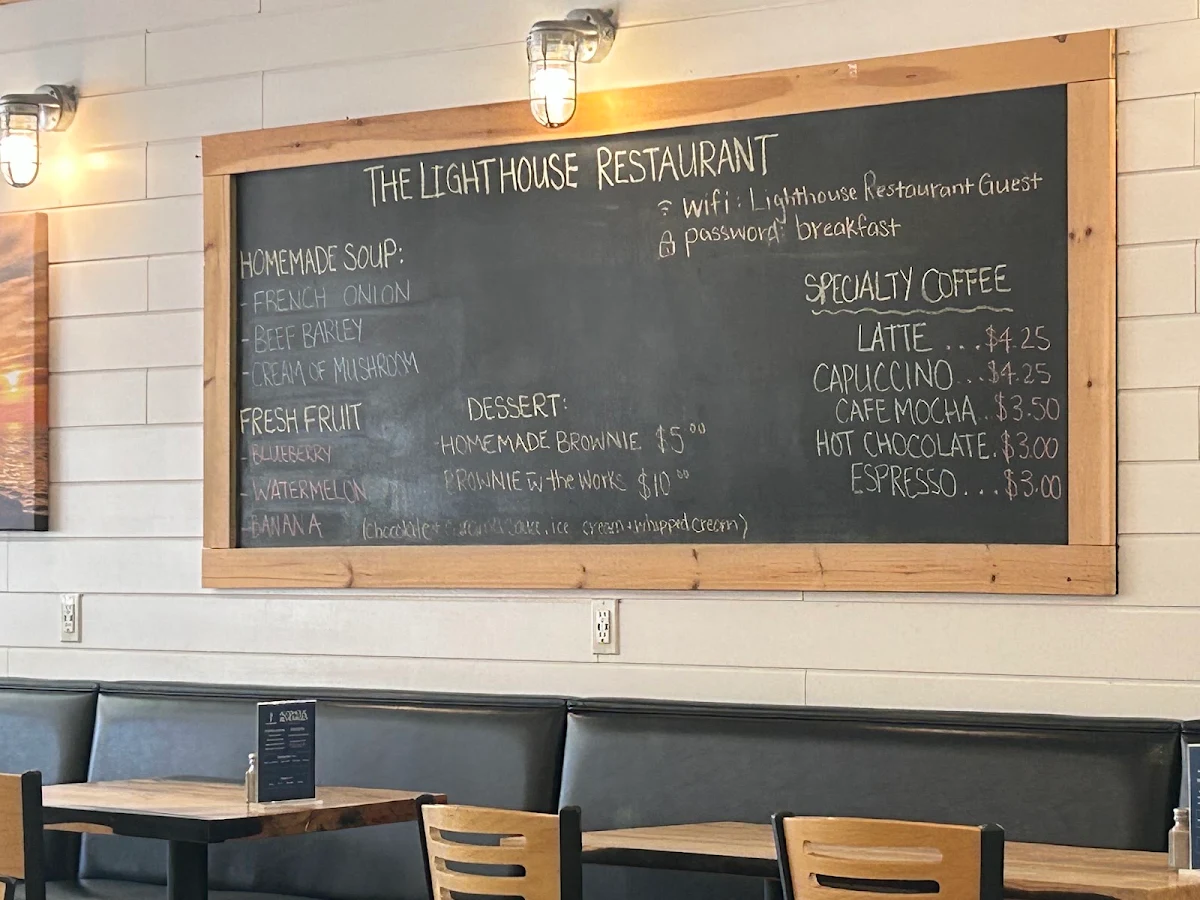 THE LIGHTHOUSE RESTAURANT
wifi: Lighthouse Restaurant Guest
password: breakfast
HOMEMADE SOUP:
- FRENCH ONION
- BEEF BARLEY
- CREAM OF MUSHROOM
FRESH FRUIT
- BLUEBERRY
- WATERMELON
- BANANA
DESSERT:
-HOMEMADE BROWNIE $5⁰⁰
BROWNIE w- the WORKS $10⁰⁰
(chocolate + sauce, ice cream + whipped cream)
SPECIALTY COFFEE
LATTE ... $4.25
CAPUCCINO... $4.25
CAFE MOCHA.. $3.50
HOT CHOCOLATE. $3.00
ESPRESSO... $3.00